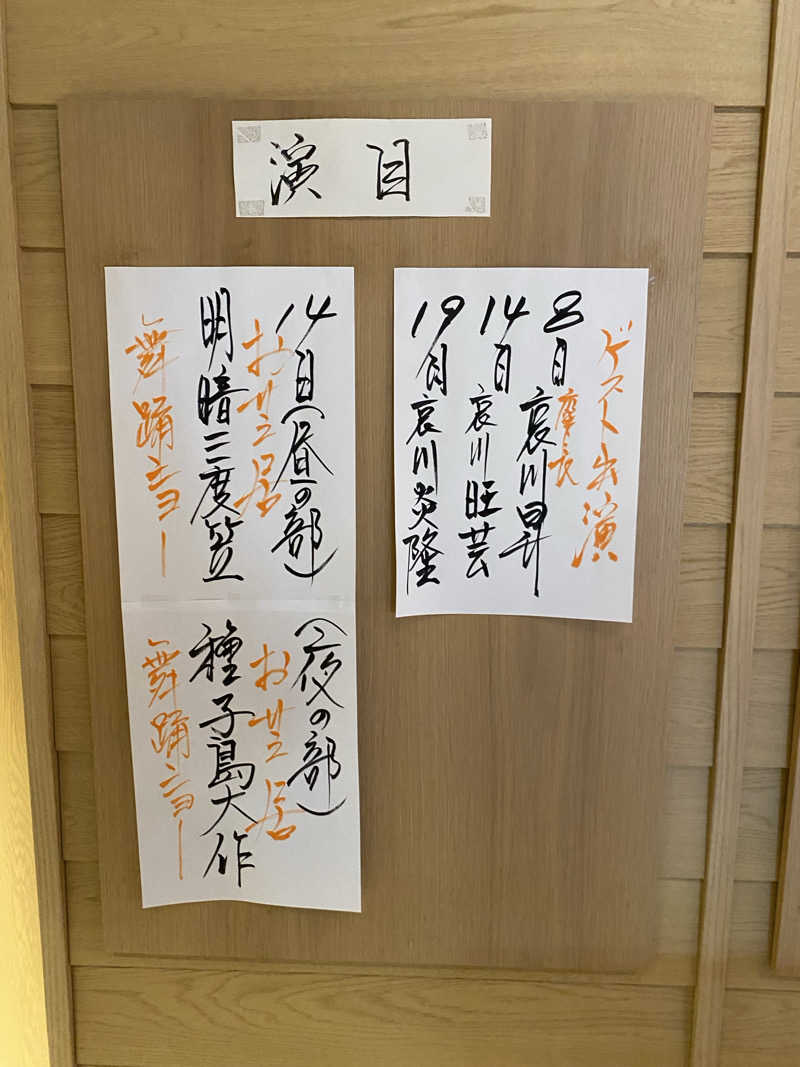 演目
ゲスト出演
8日 哀川昇
14日 哀川旺芸
19日 哀川炎隆
14日(昼の部)
お芝居
明暗三度笠
舞踊ショー
(夜の部)
お芝居
種子島大作
舞踊ショー